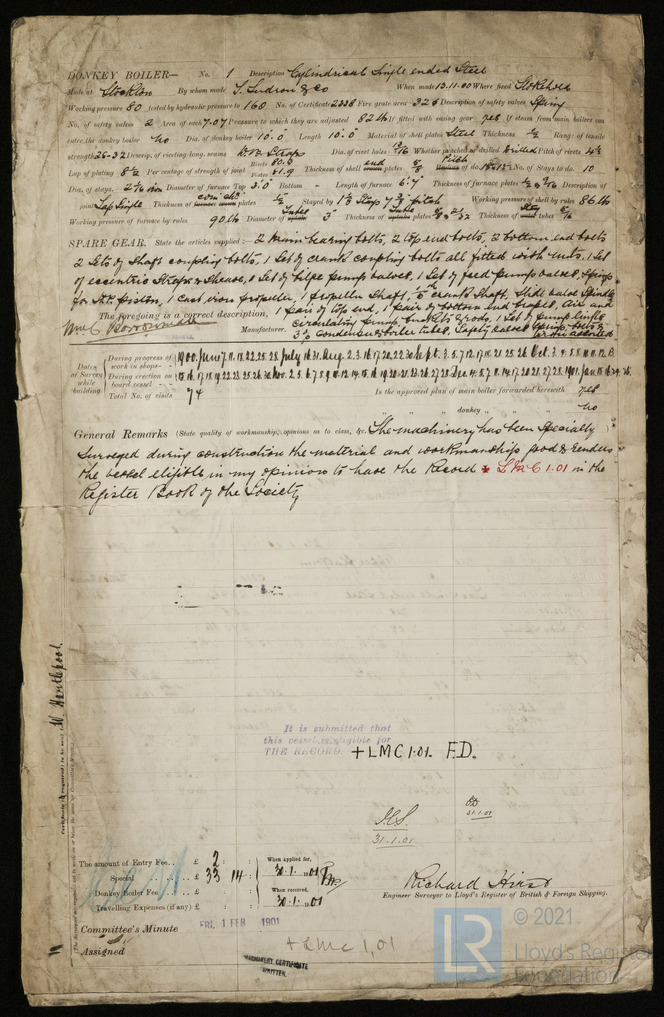 DONKEY BOILER— No. 1 Description Cylindrical Single ended Steel
Made at Stockton By whom made T. Sudron & Co When made 13.11.00 Where fixed Stokehold
Working pressure 80 tested by hydraulic pressure to 160 No. of Certificate 2338 Fire grate area 32 Description of safety valves Spring
No. of safety valves 2 Area of each 7.07 Pressure to which they are adjusted 82 lb If fitted with easing gear yes If steam from main boilers can
enter the donkey boiler no Dia. of donkey boiler 10'.0" Length 10'.0" Material of shell plates Steel Thickness Range of tensile
strength 28-32 Descrip. of riveting long. seams Dia. of rivet holes 13/16 Whether punched or drilled drilled Pitch of rivets
Lap of plating 8½ Per centage of strength of joint Rivets 80.0 Plates 81.9 Thickness of shell end plates Pitch of do. No. of Stays to do. 10
Dia. of stays. Diameter of furnace Top 3'.0" Bottom - Length of furnace 6'.7" Thickness of furnace plates Description of
joint Lap Single Thickness of plates Stayed by pitch Working pressure of shell by rules 86 lb
Working pressure of furnace by rules 90 lb Diameter of tubes 3" Thickness of tube plates Thickness of Stay tubes 5/16
SPARE GEAR. State the articles supplied:— 2 main bearing bolts, 2 top end bolts, 2 bottom end bolts
2 Sets of Shaft coupling bolts, 1 Set of crank coupling bolts all fitted with nuts. 1 Set
of eccentric Straps & Sheave, 1 Set of bilge pump valves, 1 Set of feed pump valves, Springs
for H.P. piston, 1 cast iron propeller, 1 propeller Shaft, crank Shaft, Slide valve Spindle
The foregoing is a correct description, 1 pair of top end, 1 pair of bottom end brasses, air and
Wm C Borrowman Manufacturer. circulating pump buckets & rods, 1 Set of pump links
3 dz condenser & boiler tubes, Safety valve Spring bolts &
iron assorted
Dates of Survey while building
During progress of work in shops - - 1900. June 7. 11. 13. 22. 25. 28. July 16. 31. Aug. 2. 3. 16. 17. 20. 22. 30 Sept. 3. 5. 7. 12. 17. 18. 21. 25. 26. Oct. 3. 4. 5. 8. 10. 11. 12. 13.
During erection on board vessel - - - 15. 16. 17. 18. 19. 22. 23. 25. 26. 30 Nov. 2. 5. 6. 7. 8. 9. 11. 12. 14. 15. 16. 19. 20. 21. 22. 23. 26. 27. 28 Dec. 4. 5. 7. 11. 14. 17. 19. 20. 21. 27. 28. 1901. Jan. 15. 16. 24. 26.
Total No. of visits 74 Is the approved plan of main boiler forwarded herewith yes
" " " donkey " " no
General Remarks (State quality of workmanship, opinions as to class, &c. The machinery has been specially
surveyed during construction the material and workmanship good & renders
the vessel eligible in my opinion to have the Record + LMC 1.01 in the
Register Book of the Society
W. Hartlepool.
It is submitted that
this vessel is eligible for
THE RECORD. + LMC 1.01. F.D.
31.1.01
31.1.01
The amount of Entry Fee. . . £ 2 : : When applied for,
Special . . . . £ 33 : 14 : 30.1.1901
Donkey Boiler Fee . . . £ : : When received,
Travelling Expenses (if any) £ : : 30.1.01
Richard Hirst
Engineer Surveyor to Lloyd's Register of British & Foreign Shipping.
Committee's Minute FRI. 1 FEB 1901
Assigned + LMC 1,01
MACHINERY CERTIFICATE
WRITTEN.
© 2021
LR
Lloyd's Register
Foundation